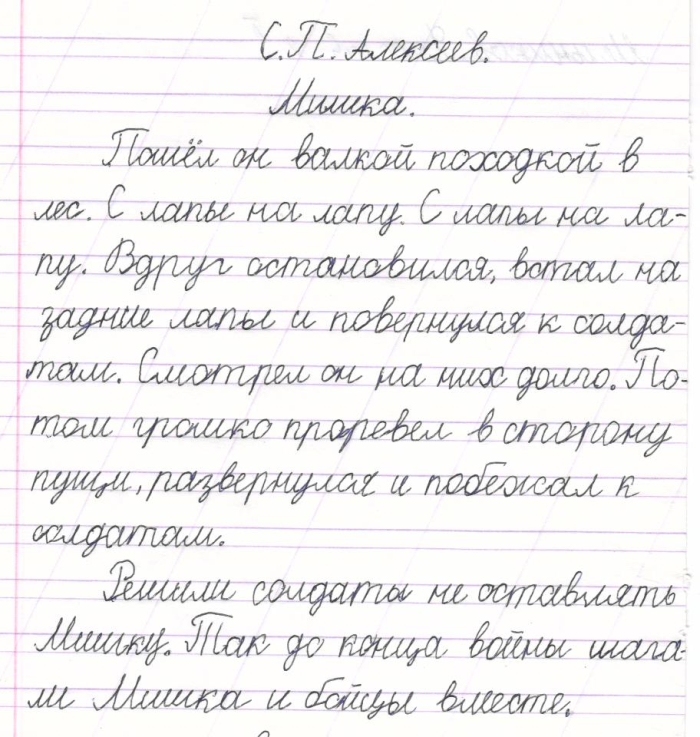 С.П. Алексеев.
Мишка.
Пошёл он валкой походкой в
лес. С лапы на лапу. С лапы на ла-
пу. Вдруг остановился, встал на
задние лапы и повернулся к солда-
там. Смотрел он на них долго. По-
том громко проревел в сторону
пущи, развернулся и побежал к
солдатам.
Решили солдаты не оставлять
Мишку. Так до конца войны шага-
ли Мишка и бойцы вместе.